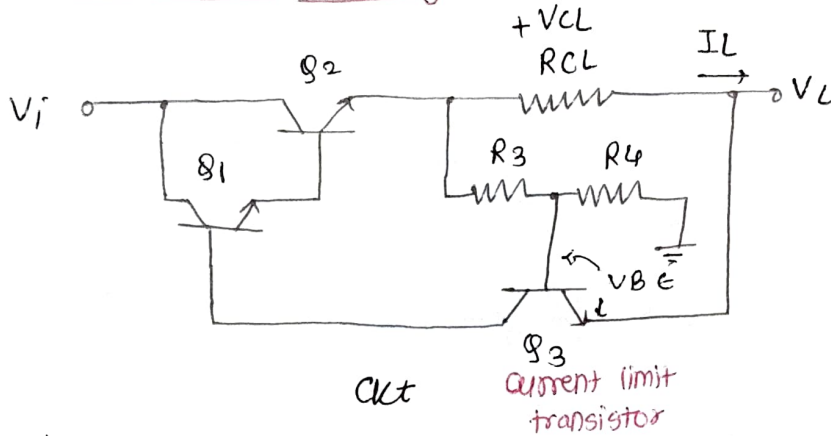 + VCL
RCL
IL
Q2
Vi
VL
Q1
R3
R4
VBE
Q3
Ckt
Current limit
transistor